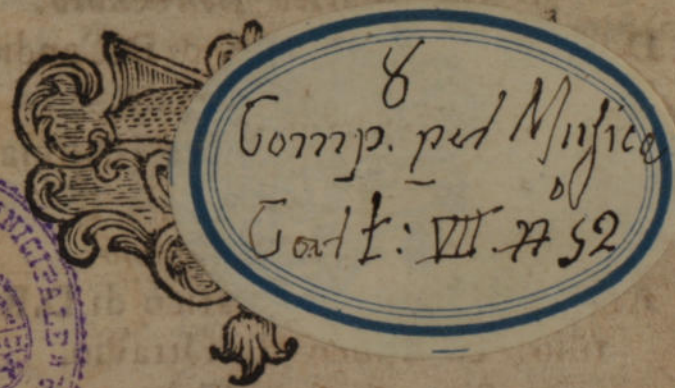 8
Comp. per Musica
Cart: VII. No 52
NICIPALE